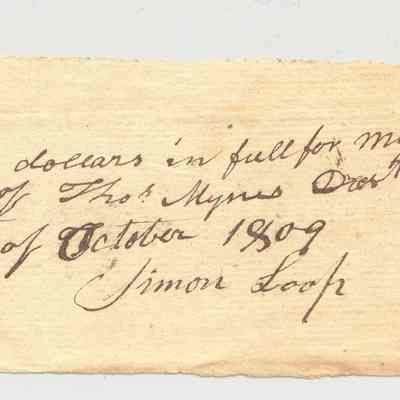 dollars in full for
of Thos Mynes
of October 1809
Simon Loop